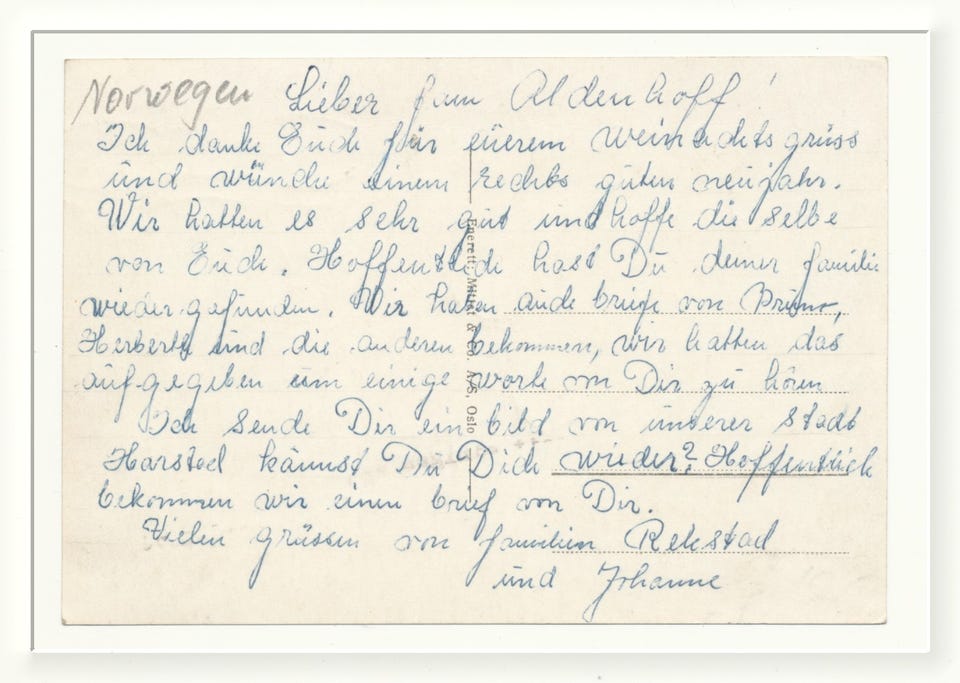 Norwegen
Lieber fam Aldenhoff!
Ich danke Euch für eüerem weinachtsgrüss
ünd wünche einem rechts güten neujahr.
Wir hatten es sehr güt ünd hoffe die selbe
von Euch. Hoffentlich hast Dü deiner familie
wieder gefünden. Wir haben aüch briefe von
Herbert ünd die anderen bekommen, wir hatten das
aufgegeben üm einige worte von Dir zü hören
Ich sende Dir ein bild von ünserer stadt
Harstad kännst Dü Dich wieder? Hoffentlich
bekommen wir einen brief von Dir.
Vielen grüssen von familien Rekstad
ünd Johanne
Enerett: Mittet & Co. A/S, Oslo